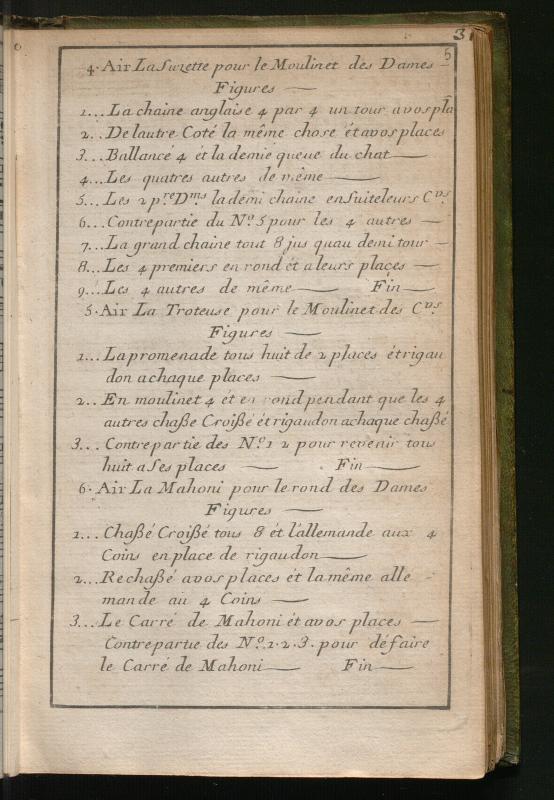 3
5
4. Air La Suzette pour le Moulinet des Dames –
Figures —
1... La chaine anglaise 4 par 4 un tour a vos pla
2.. De lautre Coté la même chose ét a vos places
3... Ballancé 4 ét la demie queue du chat —
4... Les quatres autres de même —
5... Les 2 p.re D.ms la demi chaine ensuite leurs C.vs
6... Contrepartie du N.o 5 pour les 4 autres —
7... La grand chaine tout 8 jus quau demi tour –
8... Les 4 premiers en rond ét a leurs places —
9... Les 4 autres de même — Fin —
5. Air La Troteuse pour le Moulinet des C.vs
Figures —
1... La promenade tous huit de 2 places ét rigau
don a chaque places —
2.. En moulinet 4 ét en rond pendant que les 4
autres chaßé Croißé ét rigaudon a chaque chaßé
3... Contrepartie des N.o 1 2 pour revenir tous
huit a Ses places — . Fin —
6. Air La Mahoni pour le rond des Dames
Figures —
1... Chaßé Croißé tous 8 ét l'allemande aux 4
Coins en place de rigaudon —
2... Rechaßé a vos places ét la même alle -
mande au 4 Coins —
3... Le Carré de Mahoni ét a vos places —
Contrepartie des N.o 1. 2. 3. pour défaire
le Carré de Mahoni — Fin —